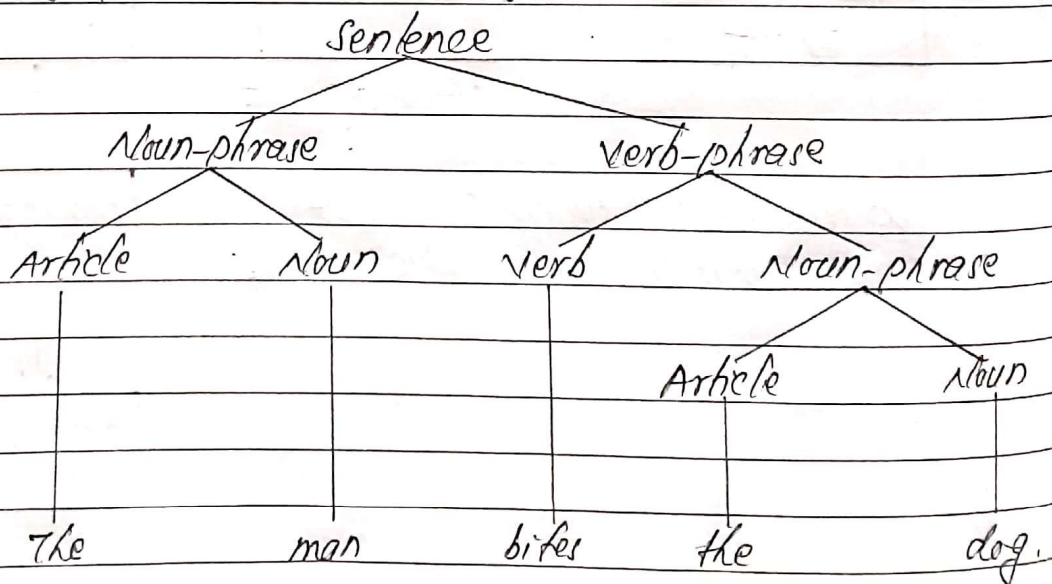 Sentence
Noun-phrase Verb-phrase
Article Noun Verb Noun-phrase
Article Noun
The man bites the dog.